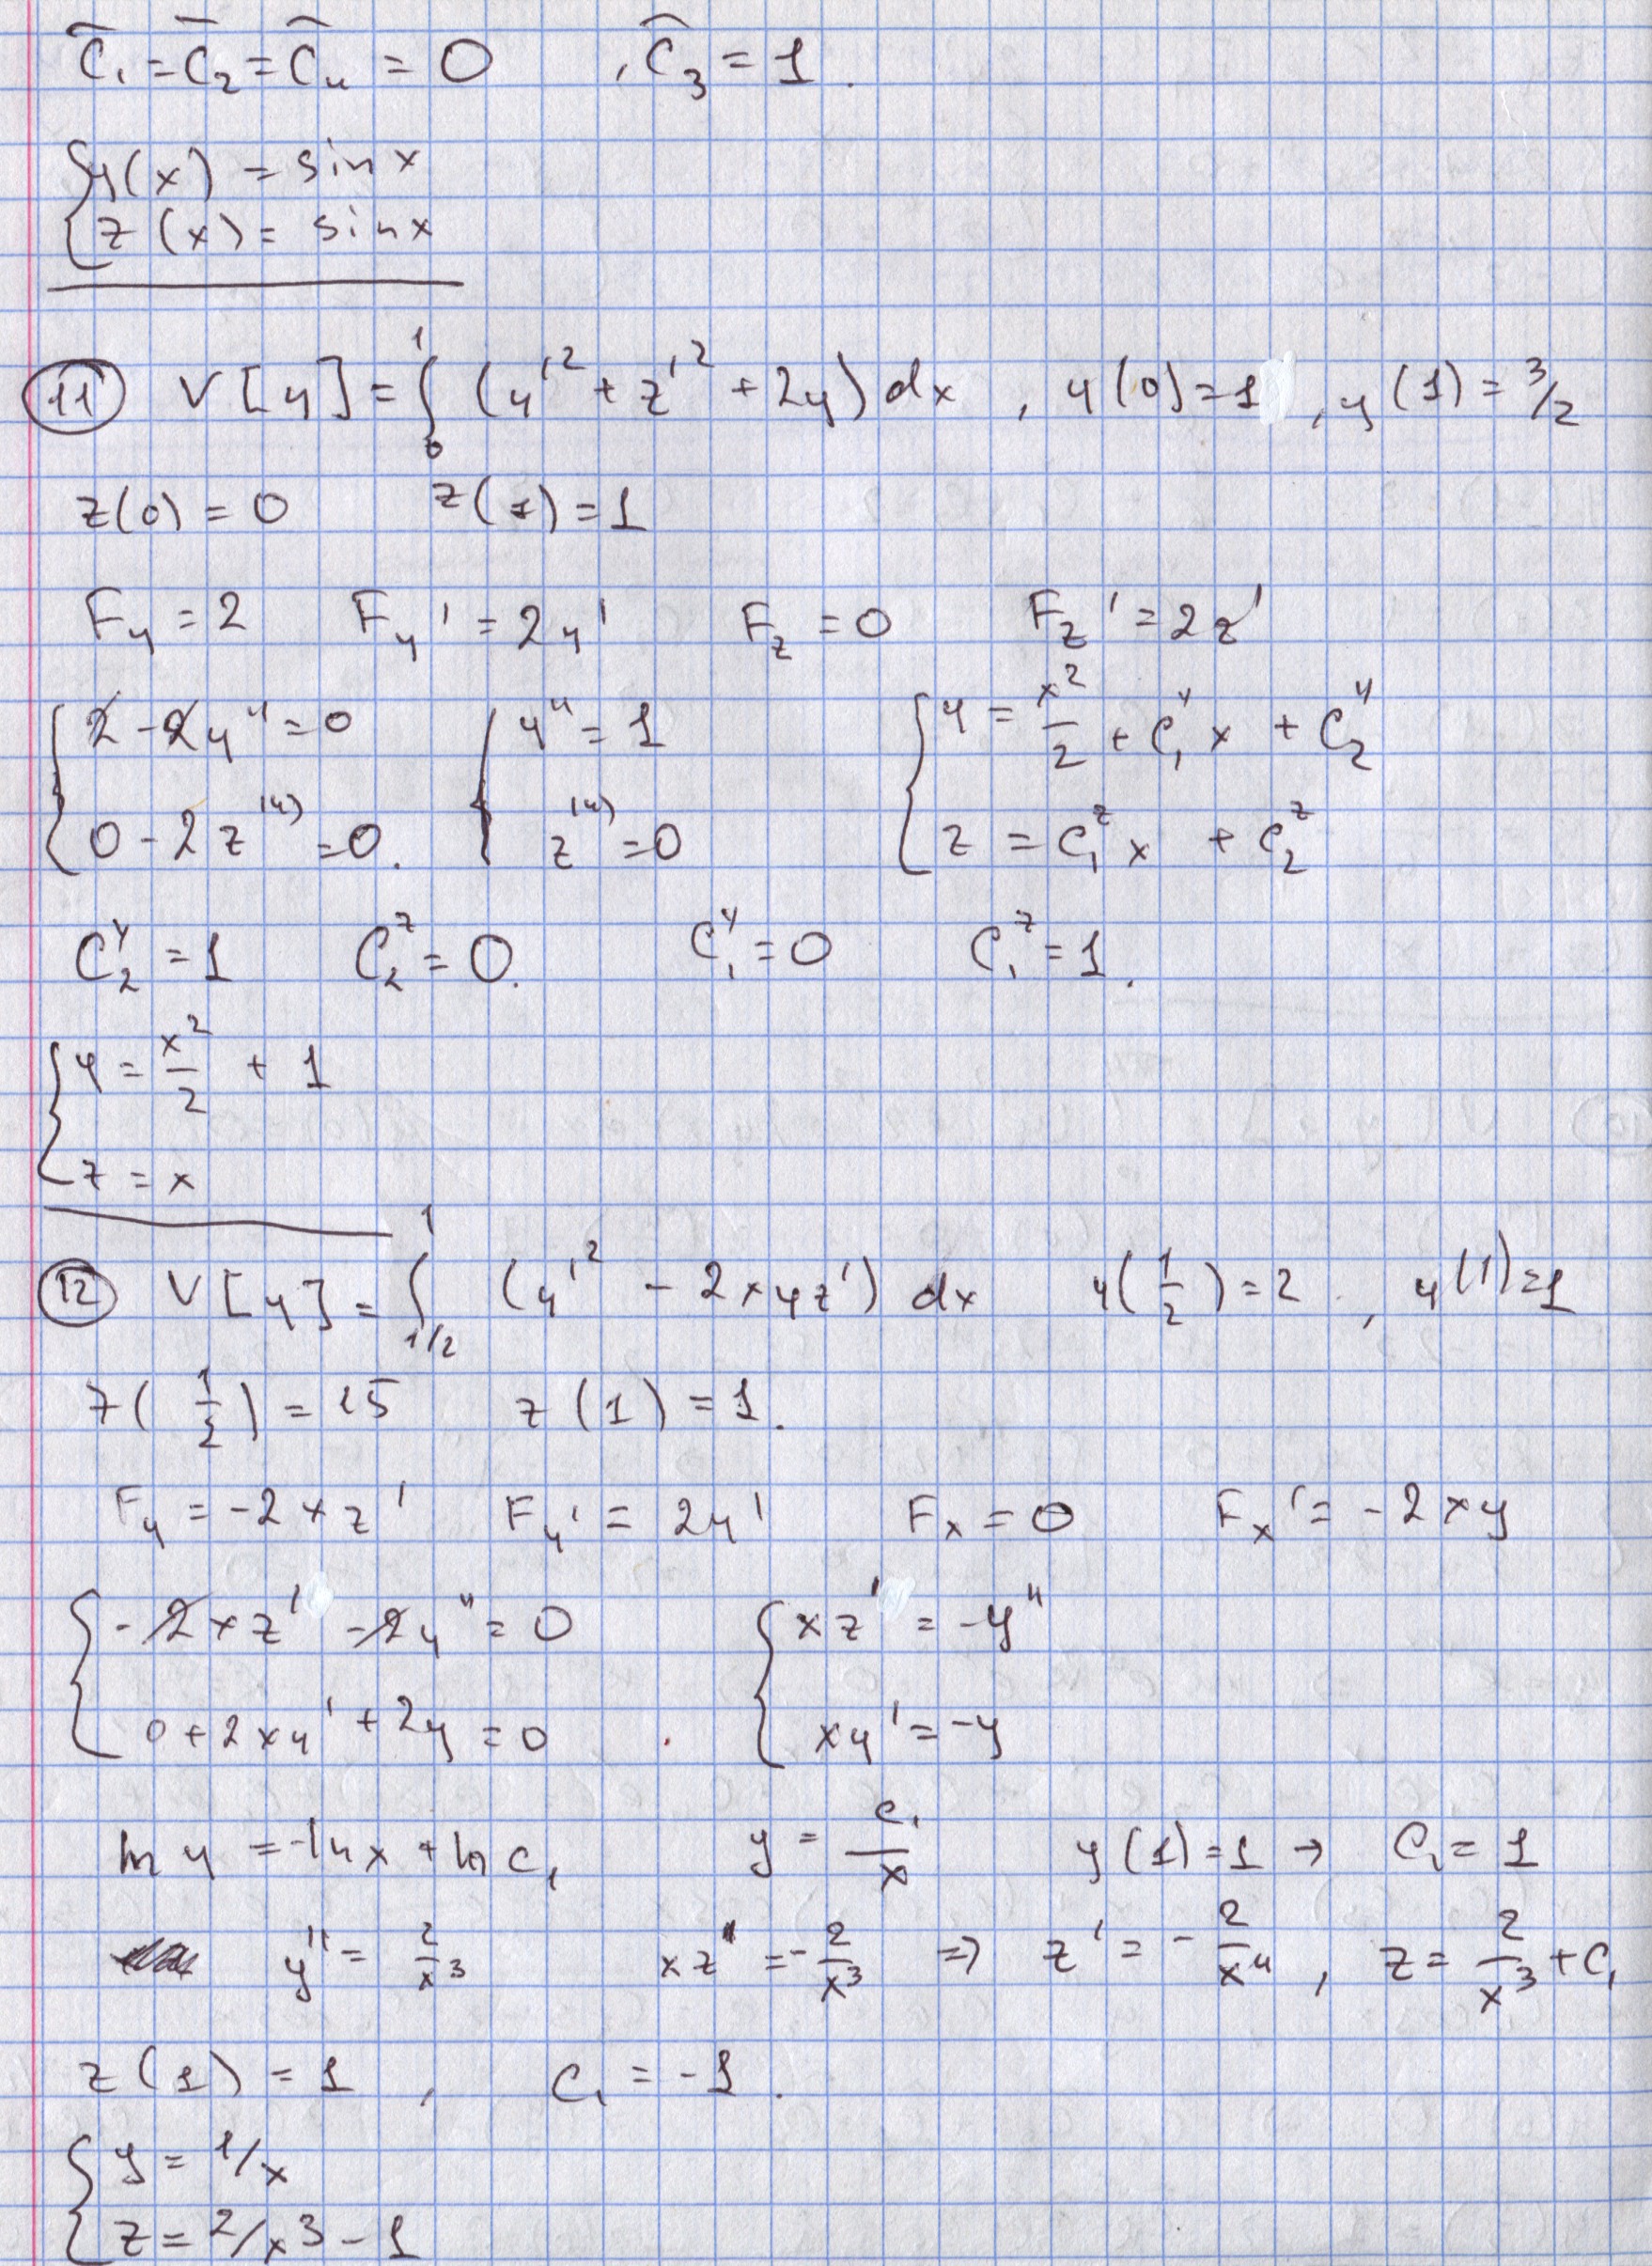 C̃₁ = C̃₂ = C̃₄ = 0 , C̃₃ = 1.
{ y(x) = sin x
{ z(x) = sin x
⑪ V[y] = ∫₀¹ (y'² + z'² + 2y) dx , y(0)=1 , y(1) = 3/2
z(0) = 0 z(1) = 1
F_y = 2 F_y' = 2y' F_z = 0 F_z' = 2z'
{ 2 - 2y'' = 0 { y'' = 1 { y = x²/2 + C₁^y x + C₂^y
{ 0 - 2z^(4) = 0. { z^(4) = 0 { z = C₁^z x + C₂^z
C₂^y = 1 C₂^z = 0. C₁^y = 0 C₁^z = 1.
{ y = x²/2 + 1
{ z = x
⑫ V[y] = ∫_{1/2}^1 (y'² - 2xyz') dx y(1/2) = 2 , y(1)=1
z(1/2) = 15 z(1) = 1.
F_y = -2xz' F_y' = 2y' F_x = 0 F_x' = -2xy
{ -2xz' - 2y'' = 0 { xz' = -y''
{ 0 + 2xy' + 2y = 0 { xy' = -y
ln y = -ln x + ln c₁ y = c₁/x y(1)=1 → C₁ = 1
y'' = 2/x³ xz' = -2/x³ ⇒ z' = -2/x⁴ , z = 2/x³ + C₁
z(1) = 1 , C₁ = -1.
{ y = 1/x
{ z = 2/x³ - 1